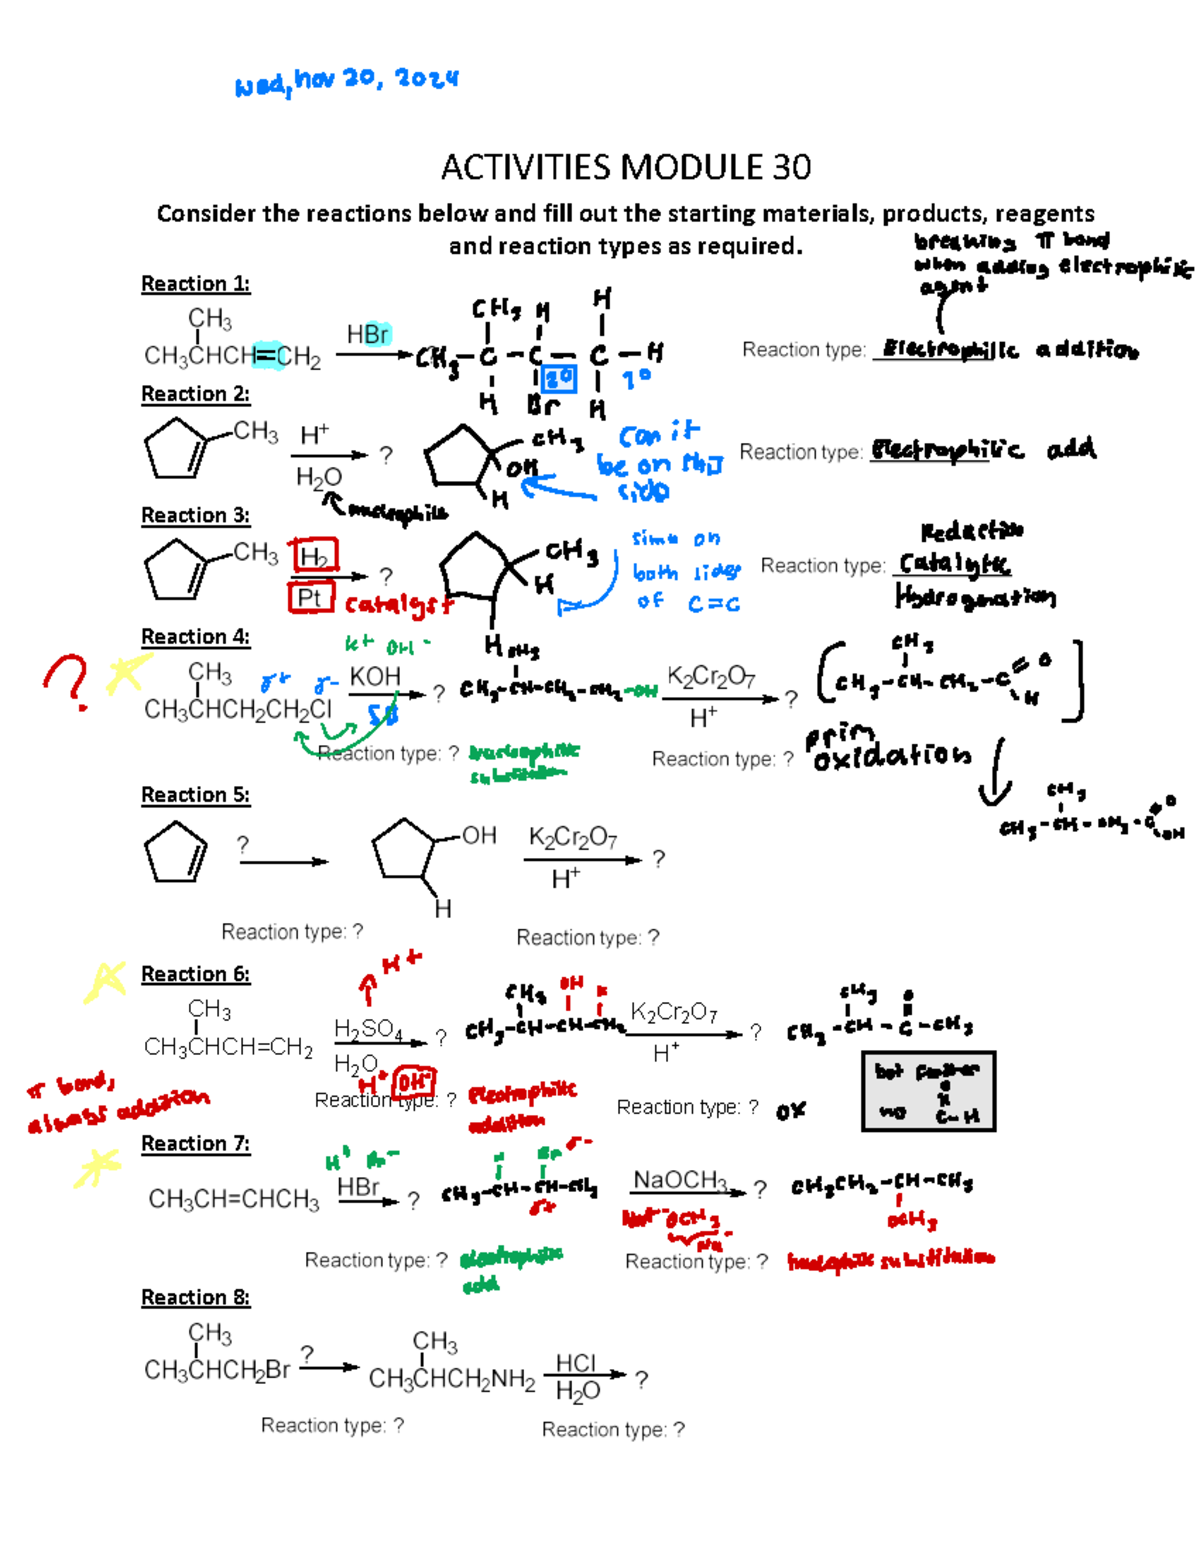 Wed, Nov 20, 2024
ACTIVITIES MODULE 30
Consider the reactions below and fill out the starting materials, products, reagents
and reaction types as required.
breaking π bond
when adding electrophilic
agent
Reaction 1:
CH3
CH3CHCH=CH2
HBr
CH3 H H
CH3-C-C-C-H
H Br H
2° 1°
Reaction type: Electrophilic addition
Reaction 2:
CH3
H+
H2O
?
nucleophile
CH3
OH
H
can it
be on this
side
Reaction type: Electrophilic add
Reaction 3:
CH3
H2
Pt
?
catalyst
CH3
H
H
same on
both sides
of C=C
Reduction
Reaction type: Catalytic
Hydrogenation
Reaction 4:
?
CH3
CH3CHCH2CH2Cl
δ+ δ-
K+ OH-
KOH
?
CH3
CH3-CH-CH2-CH2-OH
K2Cr2O7
H+
?
CH3
CH3-CH-CH2-C
O
H
Reaction type: ? Nucleophilic
substitution
Reaction type: ? prim
oxidation
CH3
CH3-CH-CH2-C
O
OH
Reaction 5:
?
OH
H
K2Cr2O7
H+
?
Reaction type: ?
Reaction type: ?
Reaction 6:
CH3
CH3CHCH=CH2
H+
H2SO4
H2O
?
H+ OH-
CH3 OH H
CH3-CH-CH-CH2
K2Cr2O7
H+
?
CH3 O
CH3-CH-C-CH3
π bond,
always addition
Reaction type: ? Electrophilic
addition
Reaction type: ? ox
not further
no
O
C-H
Reaction 7:
CH3CH=CHCH3
H+ Br-
HBr
?
H Br δ-
CH3-CH-CH-CH3
δ+
NaOCH3
Na+ -OCH3
Nu-
?
CH3CH2-CH-CH3
OCH3
Reaction type: ? electrophilic
add
Reaction type: ? nucleophilic substitution
Reaction 8:
CH3
CH3CHCH2Br
?
CH3
CH3CHCH2NH2
HCl
H2O
?
Reaction type: ?
Reaction type: ?